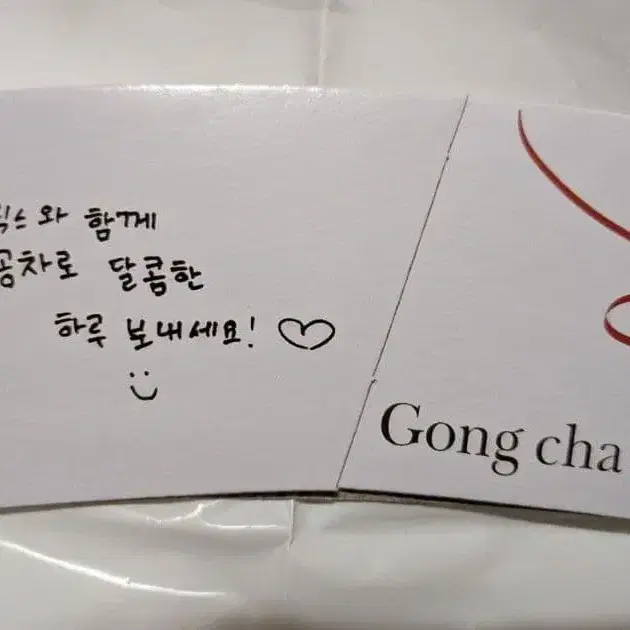 와 함께
공차로 달콤한
하루 보내세요! ♡
Gong cha